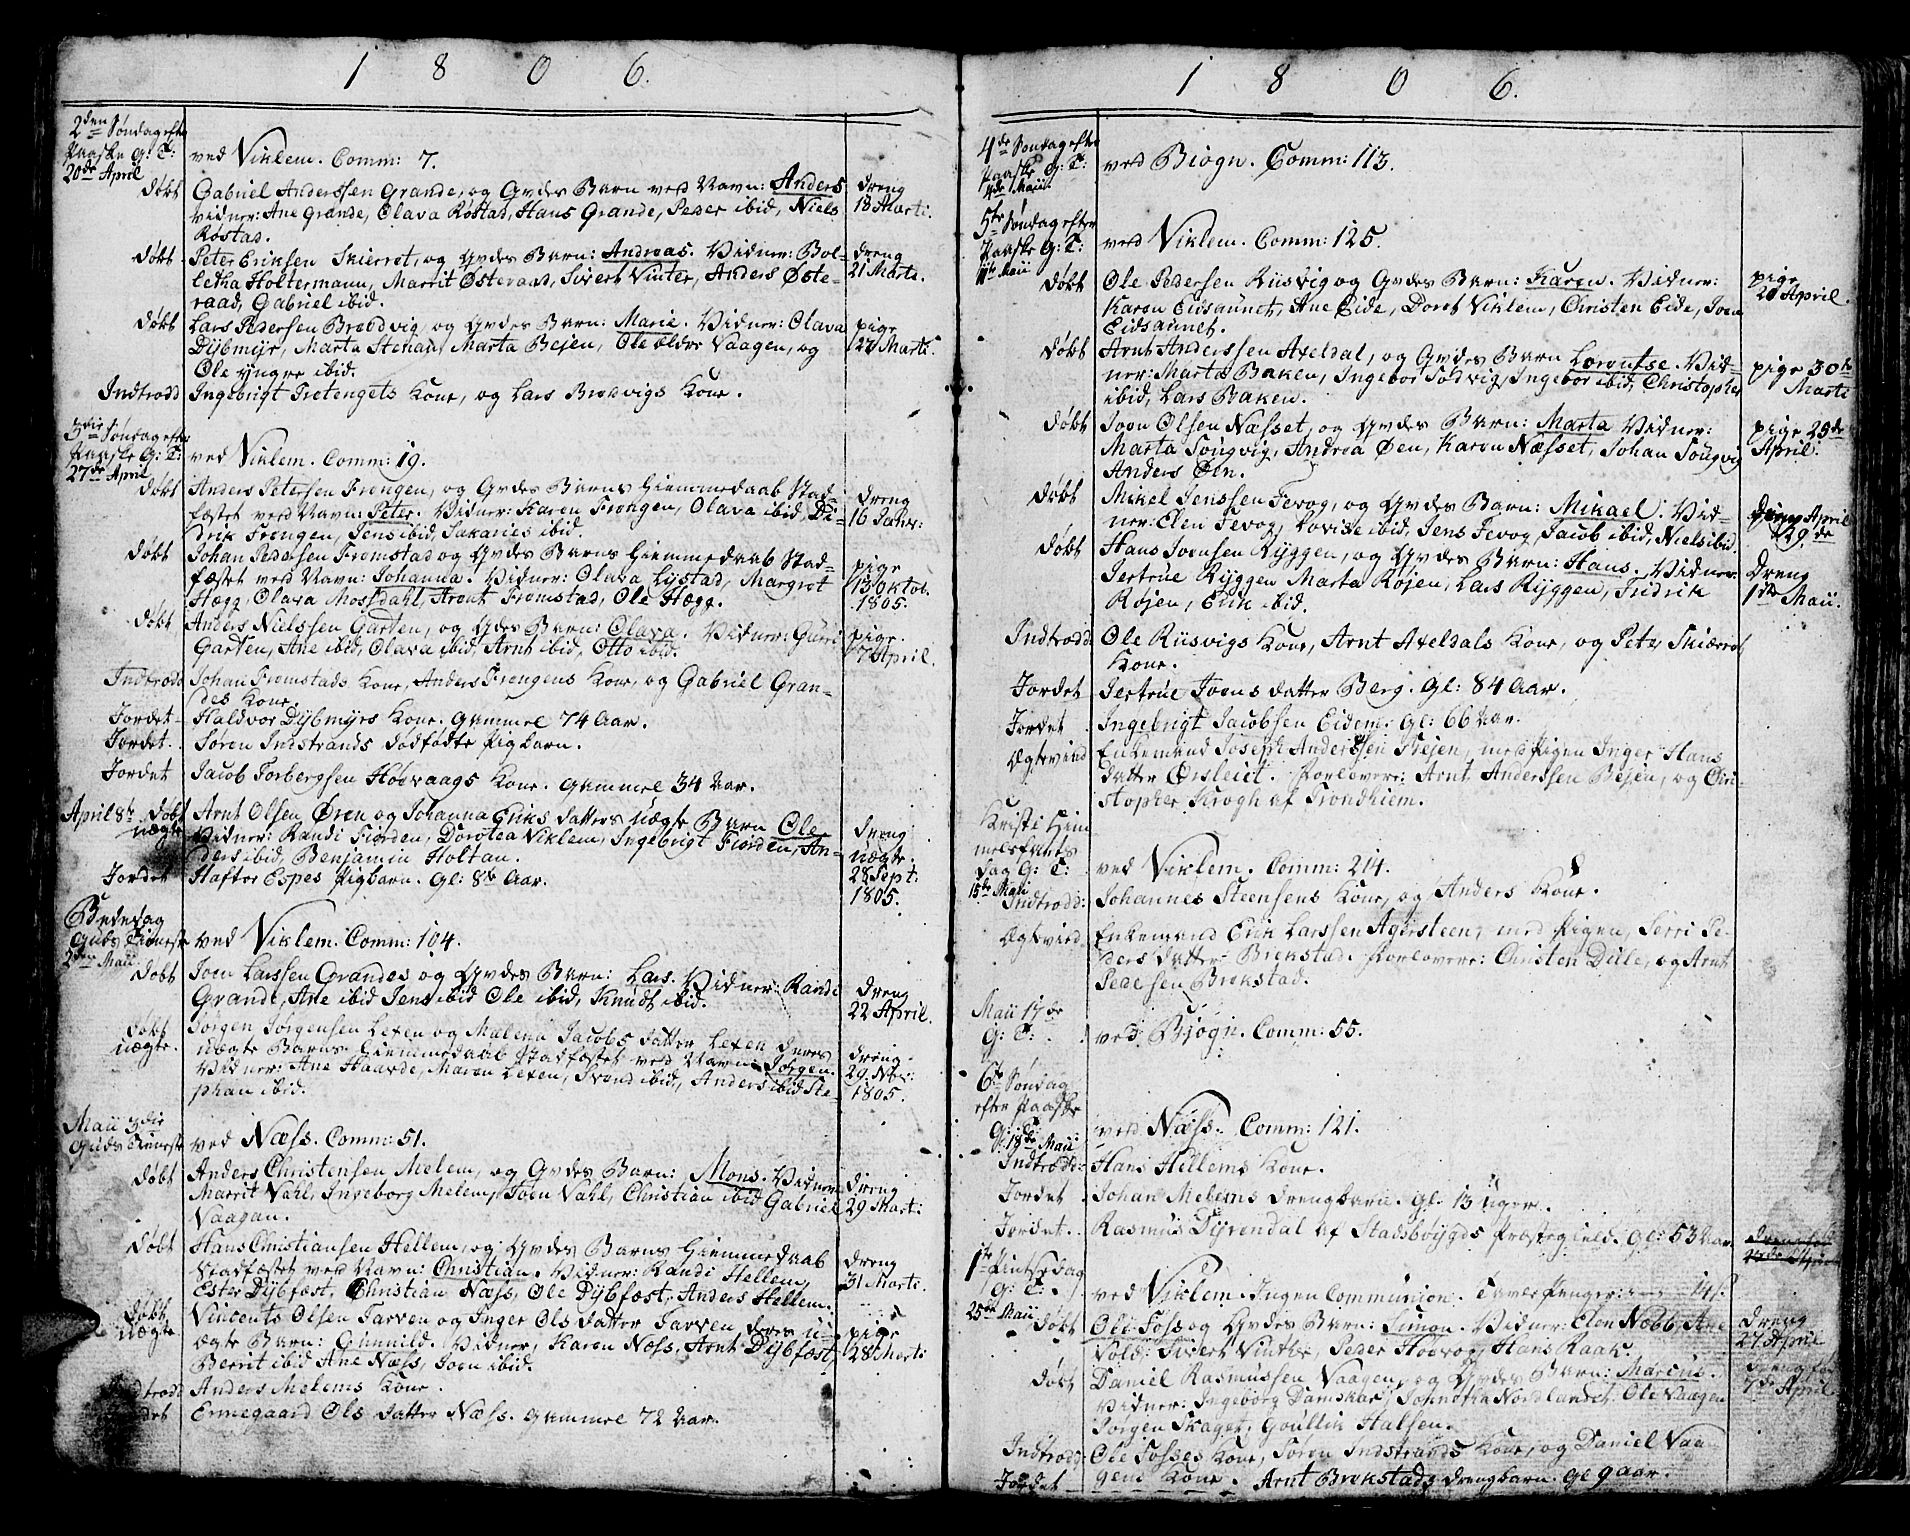 1806.
2den Søndag efter
Paaske G: T:
20de April
ved Viklem. Comm: 7.
døbt Gabriel Anderssen Grande, og Qvdes Barn ved Navn: Anders dreng
Vidner: Ane Grande, Olava Røstad, Hans Grande, Peder ibid, Niels 18 Marti.
Røstad.
døbt Peter Eriksen Skierret, og Qvdes Barn: Andreas. Vidner: Bol- dreng
letha Holtermann, Marrit Østeraad, Sivert Vinter, Anders Øste- 21 Marti.
raad, Gabriel ibid.
døbt Lars Pedersen Brødvig, og Qvdes Barn: Marie. Vidner: Olava pige
Dÿbmÿr, Marta Stenan, Marta Bejen, Ole ældre Vaagen, og 27 Marti.
Ole yngre ibid.
Indtrodd Ingebrigt Tretengets Kone, og Lars Brødvigs Kone.
3die Søndag efter
Paaske G: T:
27de April
ved Viklem. Comm: 19.
døbt Anders Petersen Frengen, og Qvdes Barns Hiemmedaab Stad- dreng
fæstet ved Navn: Peter. Vidner: Karen Frengen, Olava ibid, Di- 16 Janv:
drik Frengen, Jens ibid, Sakarias ibid.
døbt Johan Pedersen Fromstad og Qvdes Barns Hiemmedaab Stad- pige
fæstet ved Navn: Johanna. Vidner: Olava Lÿstad, Margret 13 Oktob.
Hægg, Olava Mossdahl, Arnt Fromstad, Ole Hægg. 1805.
døbt Anders Nielssen Garten, og Qvdes Barn: Olava. Vidner: Guri pige.
Garten, Ane ibid, Olava ibid, Arnt ibid, Otto ibid. 7 April.
Indtrodd Johan Fromstads Kone, Anders Frengens Kone, og Gabriel Gran-
des Kone.
Jordet Haldvor Dÿbmÿrs Kone. Gammel 74 Aar.
Jordet. Søren Indstrands dødfødte Pigbarn.
Jordet Jacob Torbergsen Høvaags Kone. Gammel 34 Aar.
April 8de døbt Arnt Olsen Øren og Johanna Eriks datters uægte Barn Ole dreng
uægte Vidner: Randi Fiorden, Dorotea Viklem, Ingebrigt Fiorden, An- uægte.
ders ibid, Benjamin Holtan. 28 Sept:
Jordet Hafter Espes Pigbarn. Gl: 8te Aar. 1805.
Bededag
Guds Tieneste
2den Maii
ved Viklem. Comm: 104.
døbt Joen Larssen Grandes og Qvdes Barn: Lars. Vidner: Randi dreng
Grande, Ane ibid Jens ibid Ole ibid, Knudt ibid. 22 April.
døbt Jørgen Jørgensen Lexen og Malena Jacobs datter Lexen deres
uægte. uægte Barns Hiemmedaab stadfæstet ved Navn: Jørgen. dreng
Vidner: Ane Haarde, Maren Lexen, Svend ibid, Anders ibid Ste- 29 Nbr:
phan ibid. 1805.
Maii 3die
Guds Tieneste
ved Næss. Comm: 51.
døbt Anders Christensen Melem, og Qvdes Barn: Mons. Vidner dreng
Marrit Vahl, Ingeborg Melem, Joen Vahl, Christian ibid Gabriel 29 Marti
Vaagan.
døbt Hans Christiansen Hellem, og Qvdes Barns Hiemmedaab dreng
Stadfæstet ved Navn: Christian. Vidner: Randi Hellem, 31 Marti
Ester Dÿbfæst, Christian Næss, Ole Dÿbfæst, Anders Hellem.
døbt Vincents Olsen Tarven og Inger Ols datter Tarven deres u-
uægte ægte Barn: Gunnild. Vidner, Karen Næss, Arnt Dÿbfæst pige
Berrit ibid Ane Næss, Joen ibid. 28 Marti
Indtrodt Anders Melems Kone.
Jordet Ennegaard Ols datter Næss. Gammel 72 Aar.
1806.
4de Søndag efter
Paaske G: T:
4de Maii
ved Biogn. Comm: 113.
5te Søndag efter
Paaske G: T:
11te Maii
ved Viklem. Comm: 125.
døbt Ole Pedersen Riisvig og Qvdes Barn: Karen. Vidner: pige
Karen Eidsaunet, Ane Eide, Doret Viklem, Christen Eide, Joen 20 April.
Eidsaunet.
døbt Arnt Anderssen Axeldal, og Qvdes Barn Lorentse. Vid-
ner: Marta Baken, Ingebor Sødvig, Ingebor ibid, Christopher pige 30te
ibid, Lars Baken. Marti
døbt Joen Olsen Næsset, og Qvdes Barn: Marta Vidner: pige 25de
Marta Sougvig, Andrea Øen, Karen Næsset, Johan Sougvig April.
Anders Øen.
døbt Mikel Jenssen Fevog, og Qvdes Barn: Mikael. Vid- dreng April
ner: Elen Fevog, Lovise ibid, Jens Fevog, Jacob ibid, Niels ibid. 29de
døbt Hans Joensen Rÿggen, og Qvdes Barn: Hans. Vidner: Dreng
Jertrue Rÿggen Marta Røjen, Lars Rÿggen, Fredrik 1ste Maii.
Røjen, Erik ibid.
Indtrodd: Ole Riisvigs Kone, Arnt Axeldals Kone, og Peter Skiærret
Kone.
Jordet Jertrue Joens datter Berg. Gl: 84 Aar.
Jordet Ingebrigt Jacobsen Eidem. Gl: 66 Aar.
Ægtevied Enkemand Joseph Anderssen Bejen, med Pigen Inger Hans
datter Ørsleiet. Forlovere: Arnt Anderssen Bejen, og Chri-
stopher Krogh af Trondhiem.
Kristi Him
melsfarts
dag G: T:
15de Maii
ved Viklem. Comm: 214.
Indtrodd: Johannes Steensens Kone, og Anders Kone.
Ægtevied Enkemand Erik Larssen Agersteen, med Pigen, Serri Pe-
ders datter Brekstad. Forlovere: Christen Dille, og Arnt
Pedersen Brekstad.
Maii 17de
G: T:
ved Bjøgn. Comm: 55.
6te Søndag
efter Paaske
G: T:
18de Maii
ved Næss. Comm: 121.
Indtrodd: Hans Hellems Kone.
Jordet Johan Melems Drengbarn. Gl: 13 uger.
Jordet. Rasmus Dÿrendal af Stadsbøÿgds Præstegield. Gl: 53 Aar.
1ste Pintsedag
G: T:
25de Maii
ved Viklem. Ingen Communion. Tavle Penger:
døbt Ole Foss og Qvdes Barn: Simon. Vidner: Elen Næbb, Ane Dreng
Vold: Sivert Vinther, Peder Høevog, Hans Raak. 27 April
døbt Daniel Rasmussen Vaagen, og Qvdes Barn: Marcus.
Vidner: Ingeborg Damskar, Johnetha Nordlandet, Ole Vaagen 7de April
Jørgen Skaget, Goutlik Halsen.
Indtrodd: Ole Fosses Kone, Søren Indstrands Kone, og Daniel Vaa
gens Kone.
Jordet Arnt Brekstads Drengbarn. Gl 9 aar.